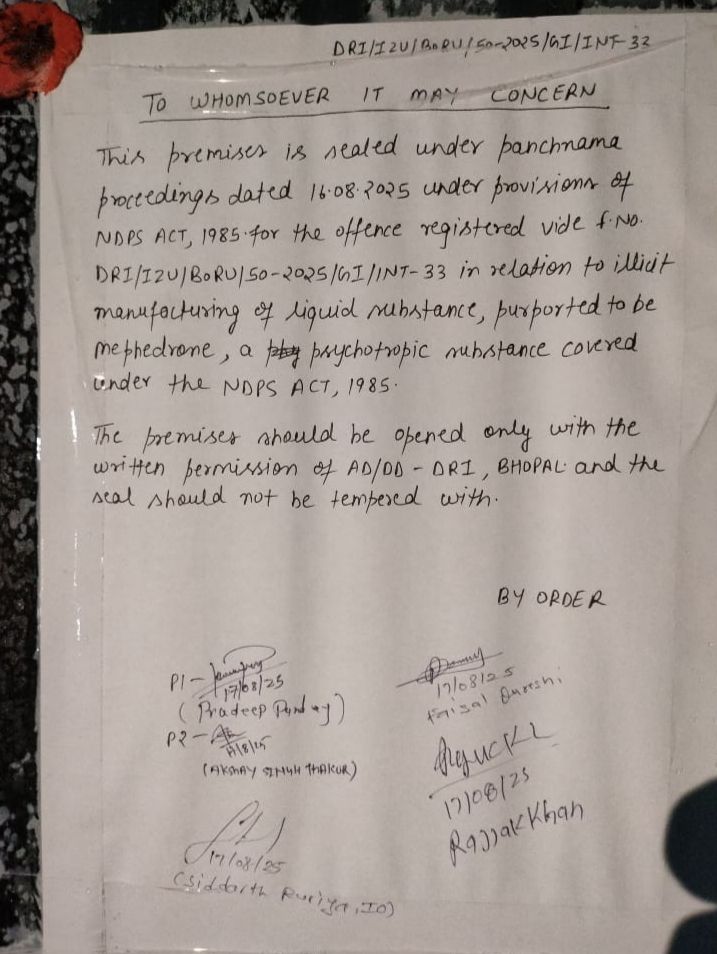 DRI/IZU/BoRU/50-2025/GI/INT-33
TO WHOMSOEVER IT MAY CONCERN
This premises is sealed under panchnama
proceedings dated 16.08.2025 under provisions of
NDPS ACT, 1985 for the offence registered vide f.No.
DRI/IZU/BoRU/50-2025/GI/INT-33 in relation to illicit
manufacturing of liquid substance, purported to be
mephedrone, a psychotropic substance covered
under the NDPS ACT, 1985.
The premises should be opened only with the
written permission of AD/DD - DRI, BHOPAL and the
seal should not be tempered with.
BY ORDER
P1-
17/08/25
(Pradeep Panday)
P2-
17/8/25
(AKSHAY SINGH THAKUR)
17/08/25
(Siddarth Ruriya, IO)
17/08/25
Faisal Qureshi
17/08/25
Rajjak Khan